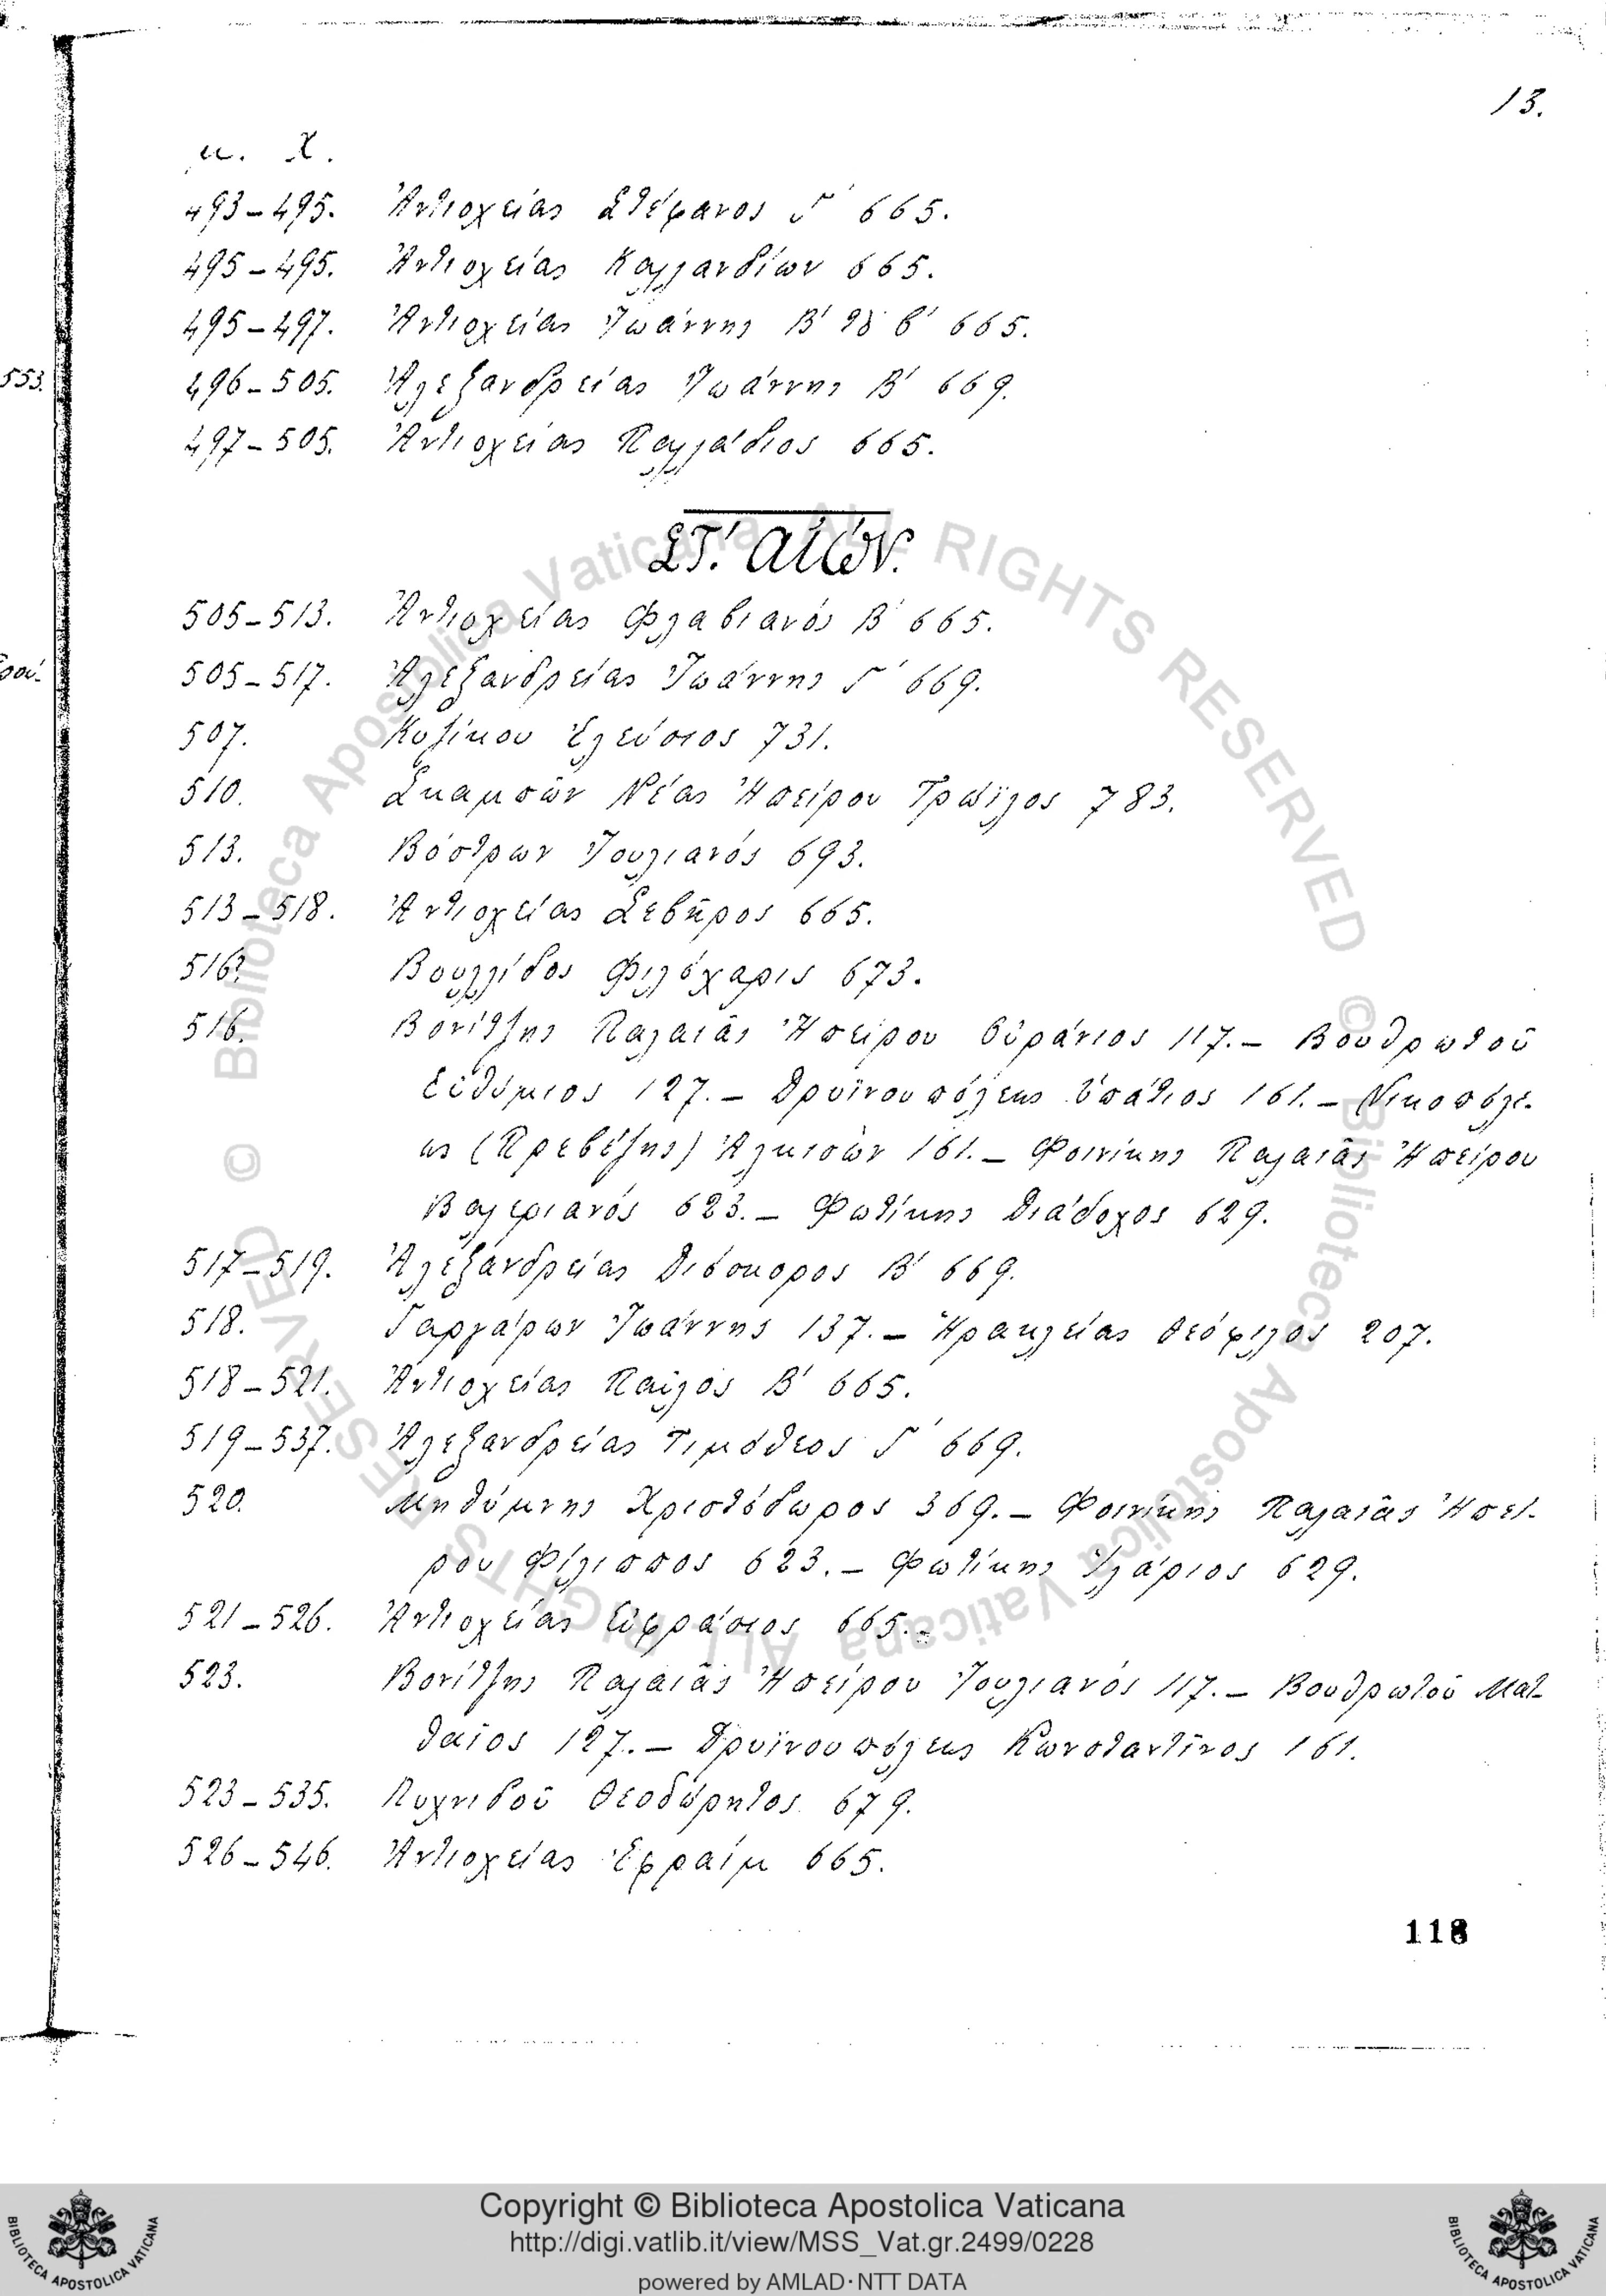 13.
μ. Χ.
493-495. Ἀντιοχείας Στέφανος Γ΄ 665.
495-495. Ἀντιοχείας Καλλανδίων 665.
495-497. Ἀντιοχείας Ἰωάννης Β΄ 665.
553.
496-505. Ἀλεξανδρείας Ἰωάννης Β΄ 669.
497-505. Ἀντιοχείας Παλλάδιος 665.
ΣΤ΄. αἰών.
505-513. Ἀντιοχείας Φλαβιανός Β΄ 665.
505-517. Ἀλεξανδρείας Ἰωάννης Γ΄ 669.
507. Κυζίκου Ἐλεύσιος 731.
510. Σκαμσῶν Νέας Ἠπείρου Τρώϊλος 783.
513. Βόστρων Ἰουλιανός 693.
513-518. Ἀντιοχείας Σεβῆρος 665.
516? Βουλλίδος Φιλόχαρις 673.
516. Βονίτζης Παλαιᾶς Ἠπείρου Οὐράνιος 117.- Βουθρωτοῦ
Εὐθύμιος 127.- Δρυϊνουπόλεως Ὑπάτιος 161.- Νικοπόλε-
ως (Πρεβέζης) Ἀλκισών 161.- Φοινίκης Παλαιᾶς Ἠπείρου
Βαλεριανός 623.- Φωτίκης Διάδοχος 629.
517-519. Ἀλεξανδρείας Διόσκορος Β΄ 669.
518. Γαργάρων Ἰωάννης 137.- Ἡρακλείας Θεόφιλος 207.
518-521. Ἀντιοχείας Παῦλος Β΄ 665.
519-537. Ἀλεξανδρείας Τιμόθεος Γ΄ 669.
520. Μηθύμνης Χριστόδωρος 369.- Φοινίκης Παλαιᾶς Ἠπεί-
ρου Φίλιππος 623.- Φωτίκης Ἱλάριος 629.
521-526. Ἀντιοχείας Εὐφράσιος 665.-
523. Βονίτζης Παλαιᾶς Ἠπείρου Ἰουλιανός 117.- Βουθρωτοῦ Ματ-
θαῖος 127.- Δρυϊνουπόλεως Κωνσταντῖνος 161.
523-535. Λυχνιδοῦ Θεοδώρητος 679.
526-546. Ἀντιοχείας Ἐφραίμ 665.
118
© Biblioteca Apostolica Vaticana ALL RIGHTS RESERVED © Biblioteca Apostolica Vaticana ALL RIGHTS RESERVED
Copyright © Biblioteca Apostolica Vaticana
http://digi.vatlib.it/view/MSS_Vat.gr.2499/0228
powered by AMLAD·NTT DATA
BIBLIOTECA APOSTOLICA VATICANA
BIBLIOTECA APOSTOLICA VATICANA